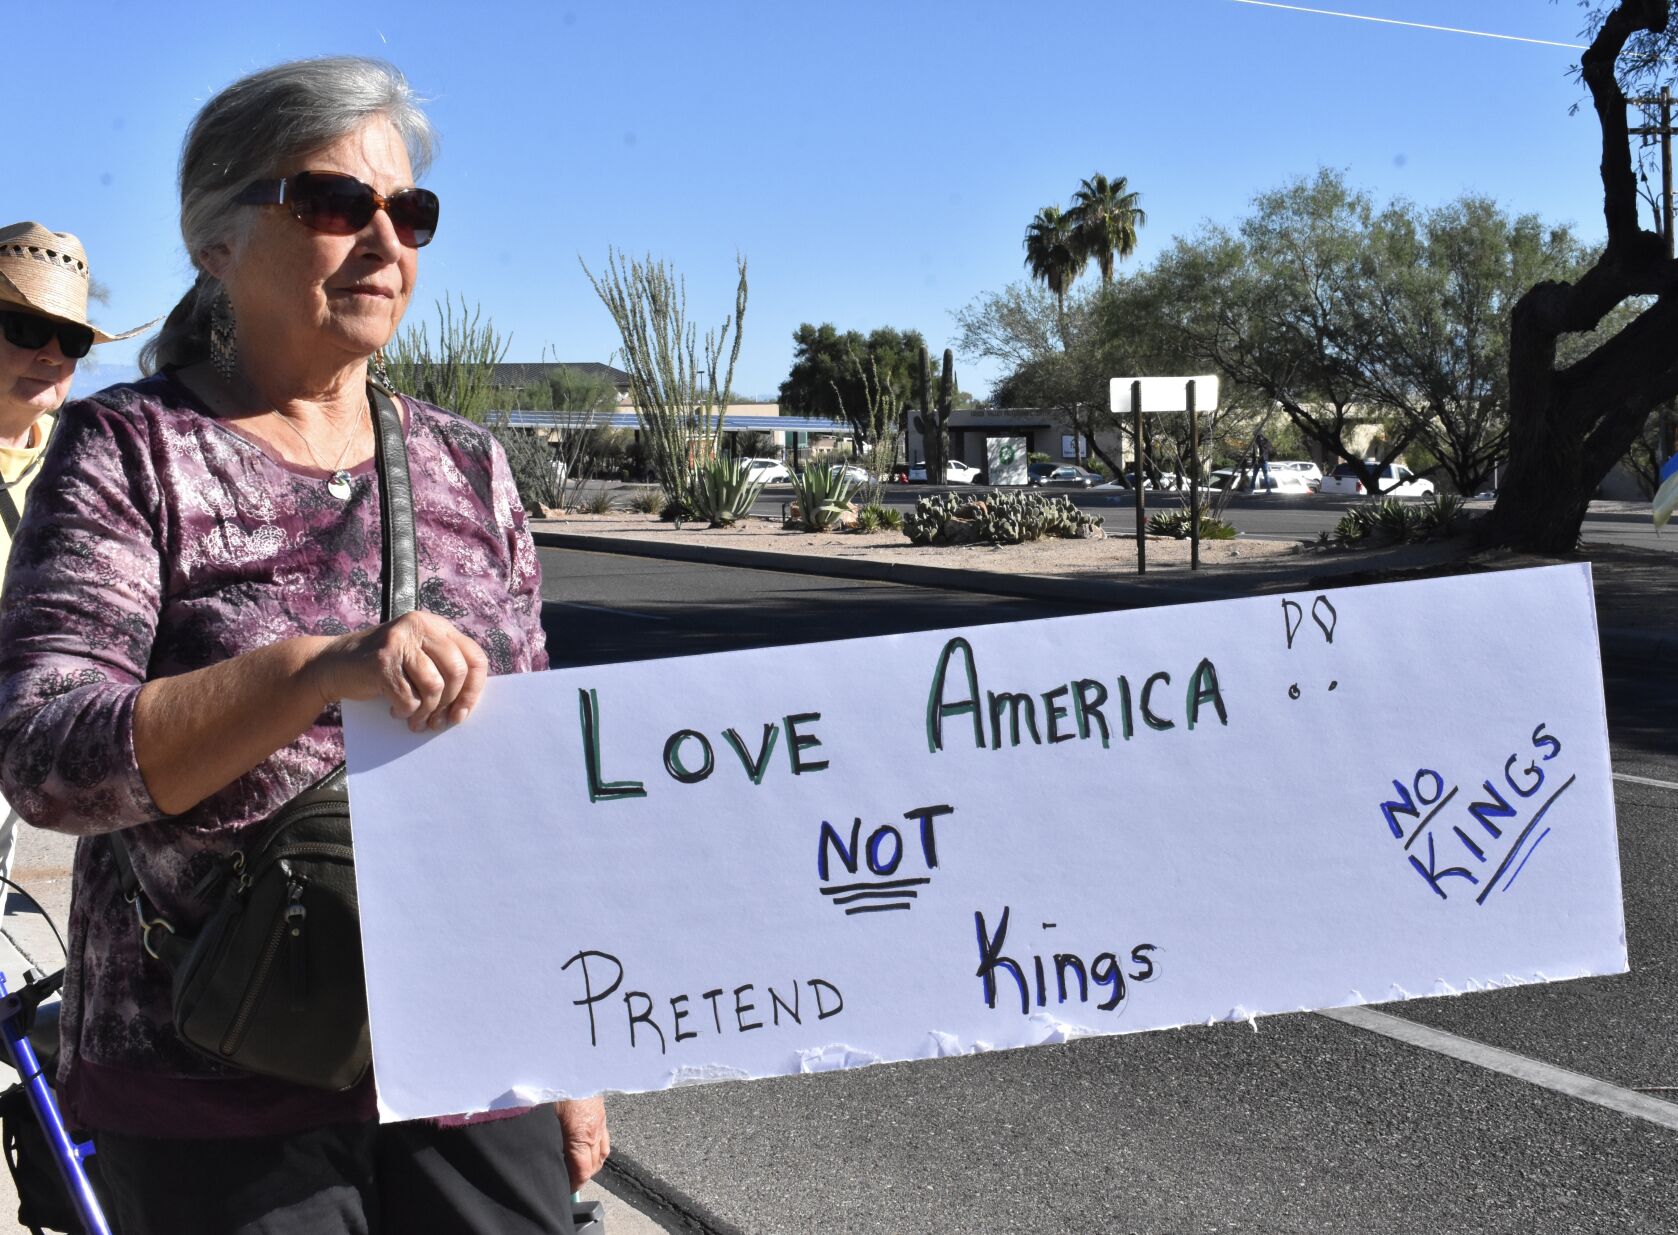 LOVE AMERICA !!
NOT
PRETEND Kings
NO
KINGS